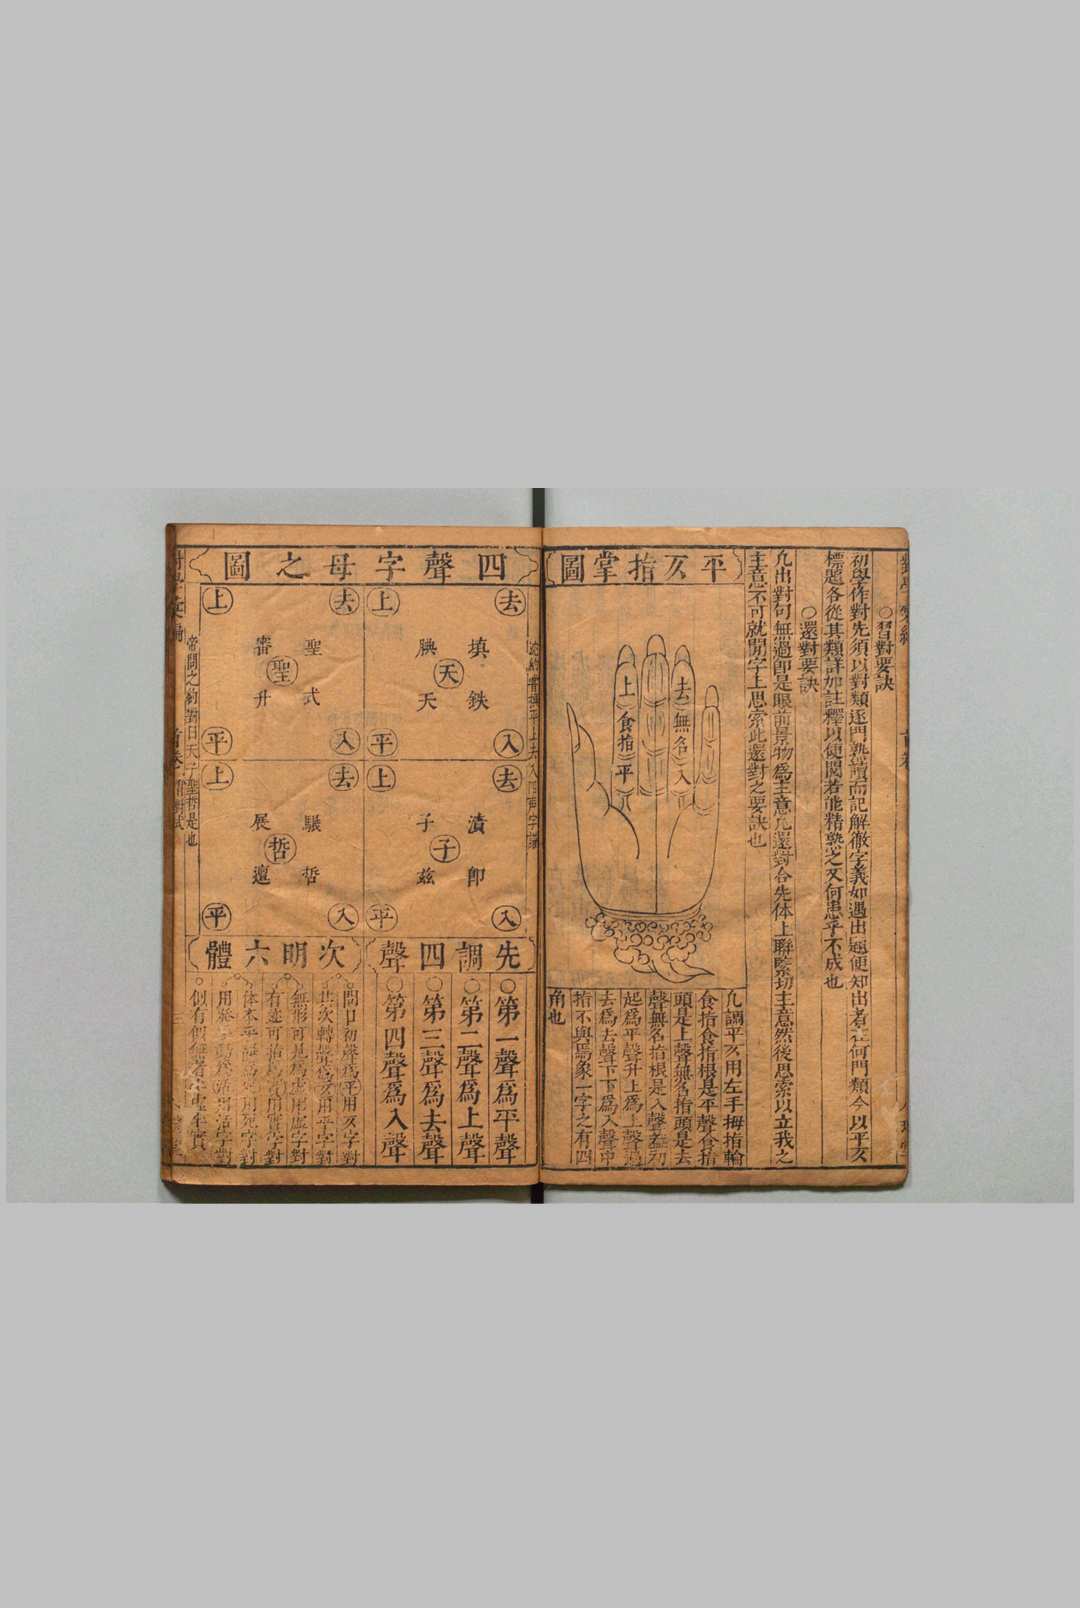 ○習對要訣
初學作對先須以對類逐門熟讀而記解徹字義如遇出題便知出者在何門類今以平仄
標題各從其類詳加註釋以便閱者能精熟之又何患乎不成也
○還對要訣
凡出對句無過即是眼前景物爲主意凡還對合先体上聯緊切主意然後思索以立我之
主意不可就閒字上思索此還對之要訣也
平仄指掌圖
上
食指
平
去
無名
入
凡調平仄用左手拇指輪
食指食指根是平聲食指
頭是上聲無名指頭是去
聲無名指根是入聲蓋初
起爲平聲升上爲上聲過
去爲去聲下下爲入聲中
指不與焉象一字之有四
角也
四聲字母之圖
去
上
填
腆
天
鉄
天
入
平
去
上
聖
審
聖
式
升
入
平
去
上
漬
子
子
即
茲
入
平
去
上
驏
展
哲
哲
邅
入
平
帝問之約對曰天子聖哲是也
先調四聲
○第一聲爲平聲
○第二聲爲上聲
○第三聲爲去聲
○第四聲爲入聲
次明六體
○開口初聲爲平用仄字對
○其次轉聲爲仄用平字對
○無形可見爲虛用虛字對
有迹可指爲實用實字對